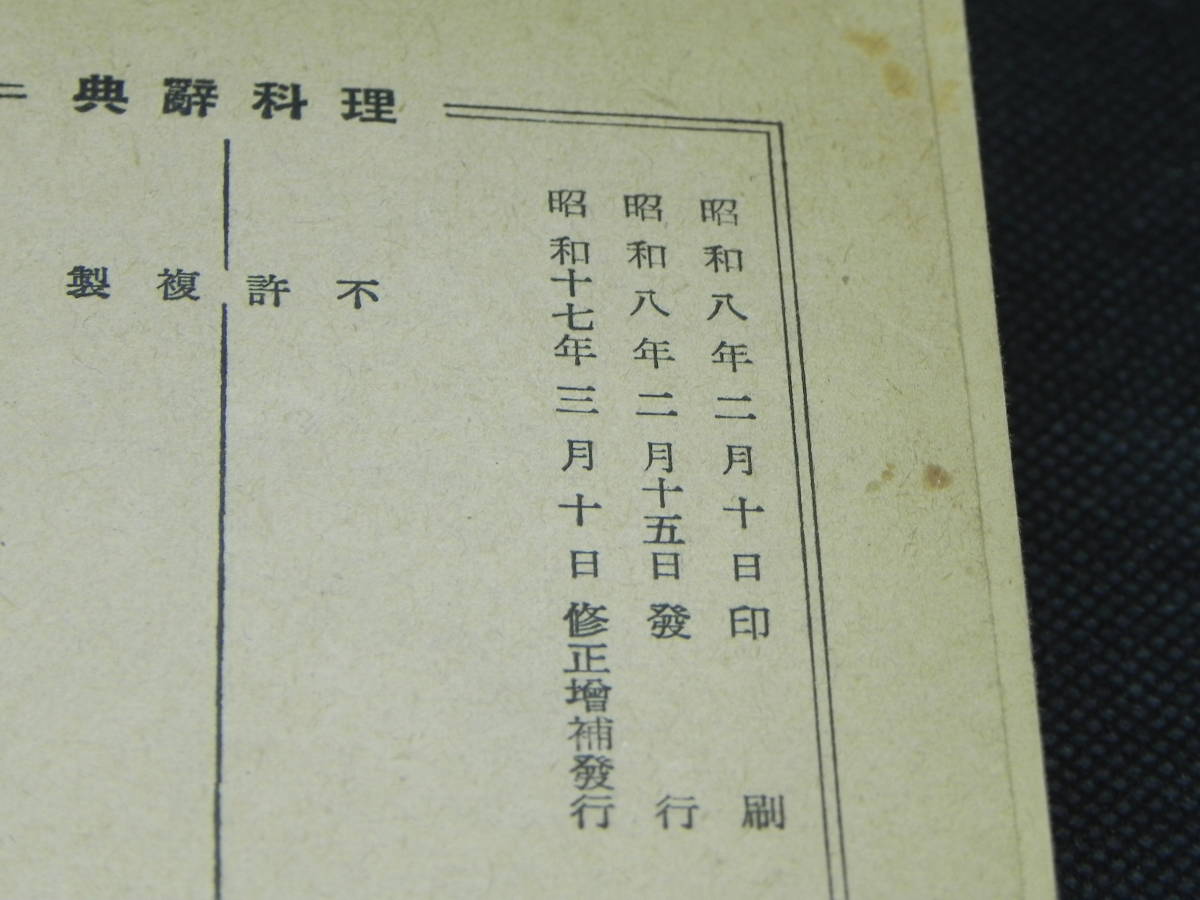 理科辭典
昭和八年二月十日印刷
昭和八年二月十五日發行
昭和十七年三月十日修正增補發行
不許複製